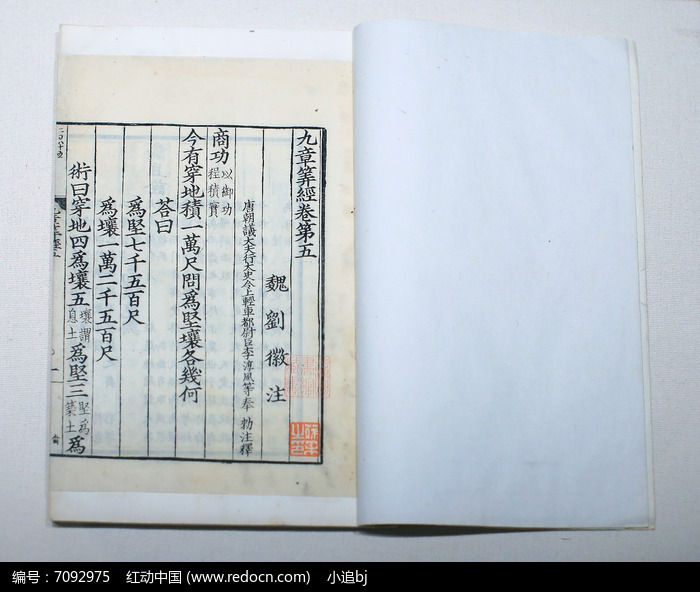 九章筭經卷第五
魏劉徽注
唐朝議大夫行太史令上輕車都尉臣李淳風等奉勑注釋
商功以御功程積實
今有穿地積一萬尺問為堅壤各幾何
荅曰
為堅七千五百尺
為壤一萬二千五百尺
術曰穿地四為壤五壤謂息土為堅三堅為築土為
编号：7092975 红动中国 (www.redocn.com) 小追bj